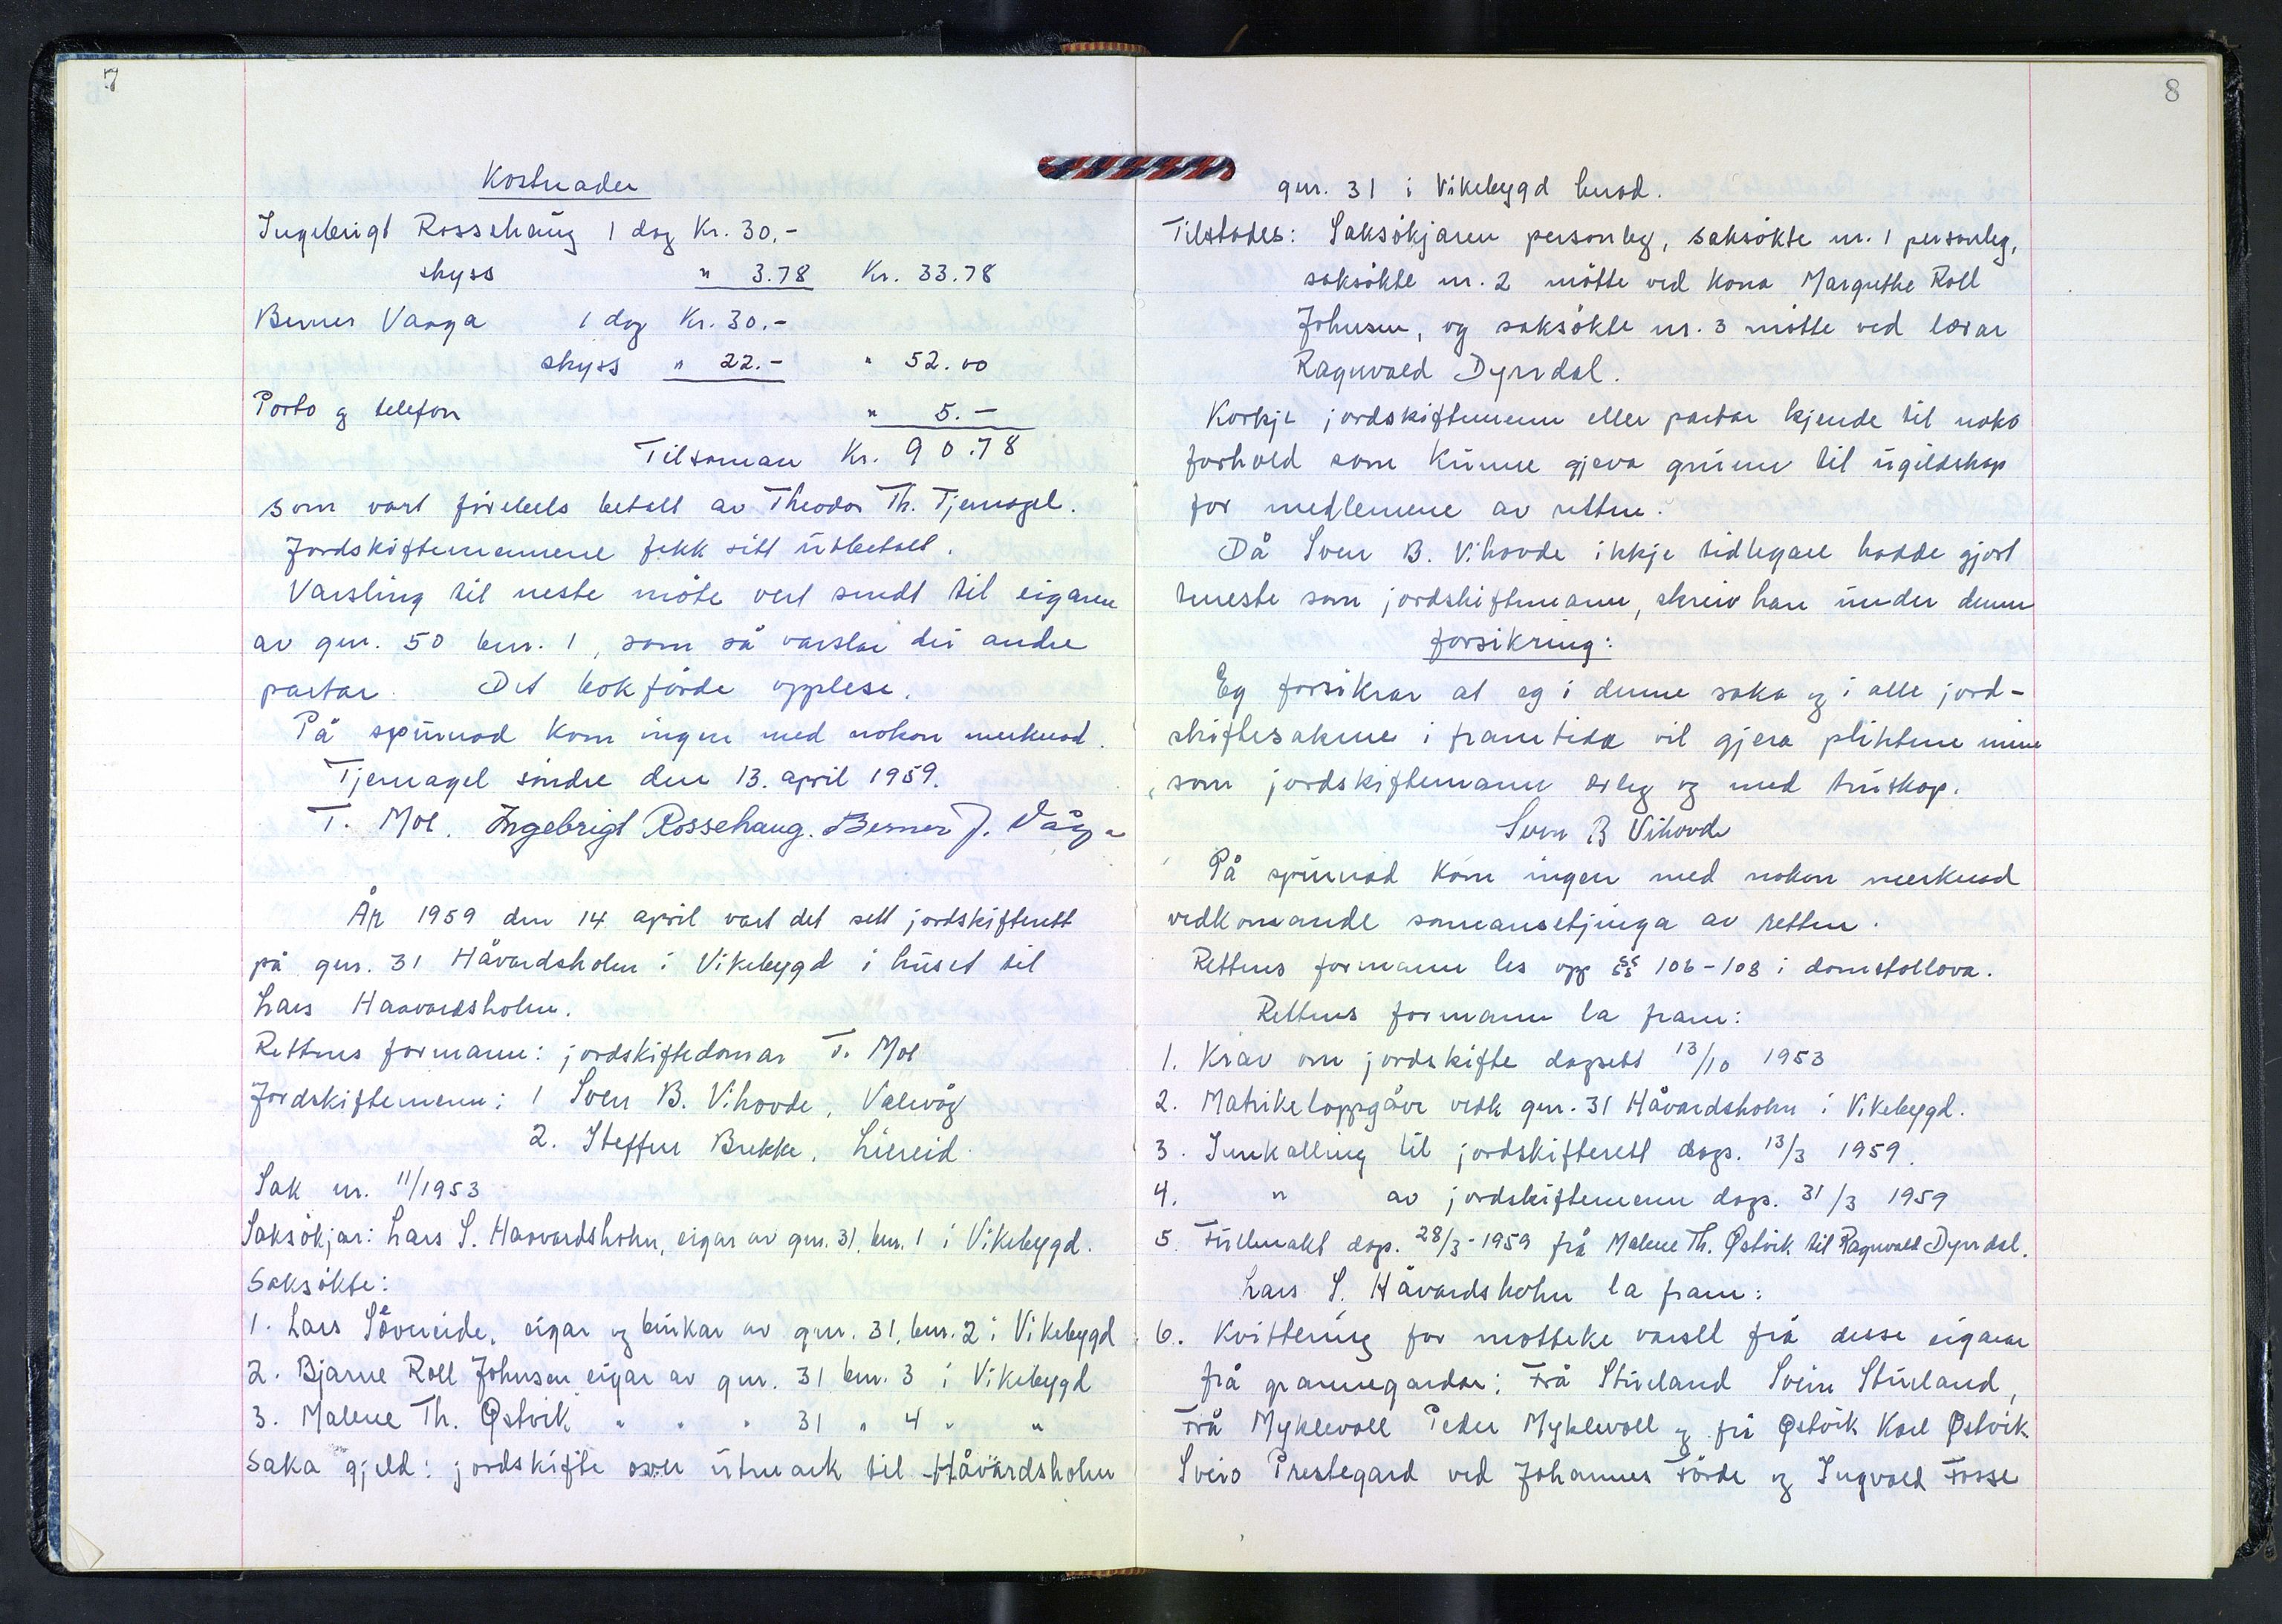 7
Kostnader
Ingebrigt Rossehaug 1 dag Kr. 30.-
skyss " 3.78 Kr. 33.78
Berner Vaaga 1 dag Kr. 30.-
skyss " 22.- " 52.00
Porto og telefon " 5.-
Tilsaman Kr. 90.78
som vart fórebels betalt av Theodor Th. Tjernagel.
Jordskiftemennene fekk sitt utbetalt.
Varsling til neste möte vert sendt til eigaren
av gnr. 50 bnr. 1, som så varslar dei andre
partar. Det bokförde opplese.
På spurnad kom ingen med nokon merknad.
Tjernagel söndre den 13. april 1959.
T. Moe. Ingebrigt Rossehaug. Berner J. Våga
År 1959 den 14 april vart det sett jordskifterett
på gnr. 31 Håvardsholm i Vikebygd i huset til
Lars Haavardsholm.
Rettens formann: jordskiftedomar T. Moe
Jordskiftemenn: 1 Sven B. Vihovde, Valevåg
2. Steffen Brekke, Liereid
Sak nr. 11/1953
Saksökjar: Lars S. Haavardsholm, eigar av gnr. 31, bnr. 1 i Vikebygd.
Saksökte:
1. Lars Sövereide, eigar og brukar av gnr. 31, bnr. 2 i Vikebygd
2. Bjarne Roll Johnsen eigar av gnr. 31 bnr. 3 i Vikebygd
3. Malene Th. Østvik " " " 31 " 4 " "
Saka gjeld: jordskifte over utmark til Håvardsholm
8
gnr. 31 i Vikebygd herad.
Tilstades: Saksökjaren personleg, saksökte nr. 1 personleg,
saksökte nr. 2 mötte ved kona Margrethe Roll
Johnsen, og saksökte nr. 3 mötte ved lærar
Ragnvald Dyrrdal.
Korkje jordskiftemenn eller partar kjende til noko
forhold som kunne gjeva grunn til ugildskap
for medlemene av retten.
Då Sven B. Vihovde ikkje tidlegare hadde gjort
teneste som jordskiftemann, skreiv han under denne
forsikring:
Eg forsikrar at eg i denne saka og i alle jord-
skiftesakene i framtida vil gjera pliktene mine
som jordskiftemann ærleg og med truskap.
Sven B Vihovde
På spurnad kom ingen med nokon merknad
vedkomande samansetjinga av retten.
Rettens formann les opp §§ 106-108 i domstollova.
Rettens formann la fram:
1. Krav om jordskifte dagsett 13/10 1953
2. Matrikeloppgåve vedk gnr. 31 Håvardsholm i Vikebygd.
3. Innkalling til jordskifterett dags. 13/3 1959.
4. " av jordskiftemenn dags. 31/3 1959
5. Fullmakt dags. 28/3-1959 frå Malene Th. Østvik til Ragnvald Dyrrdal.
Lars S. Håvardsholm la fram:
6. Kvittering for motteke varsel frå desse eigarar
frå grannegardar: Frå Stueland Svein Stueland,
Frå Myklevoll Peder Myklevoll og frå Østvik Karl Østvik
Sveio Prestegard ved Johannes Förde og Ingvald Fosse